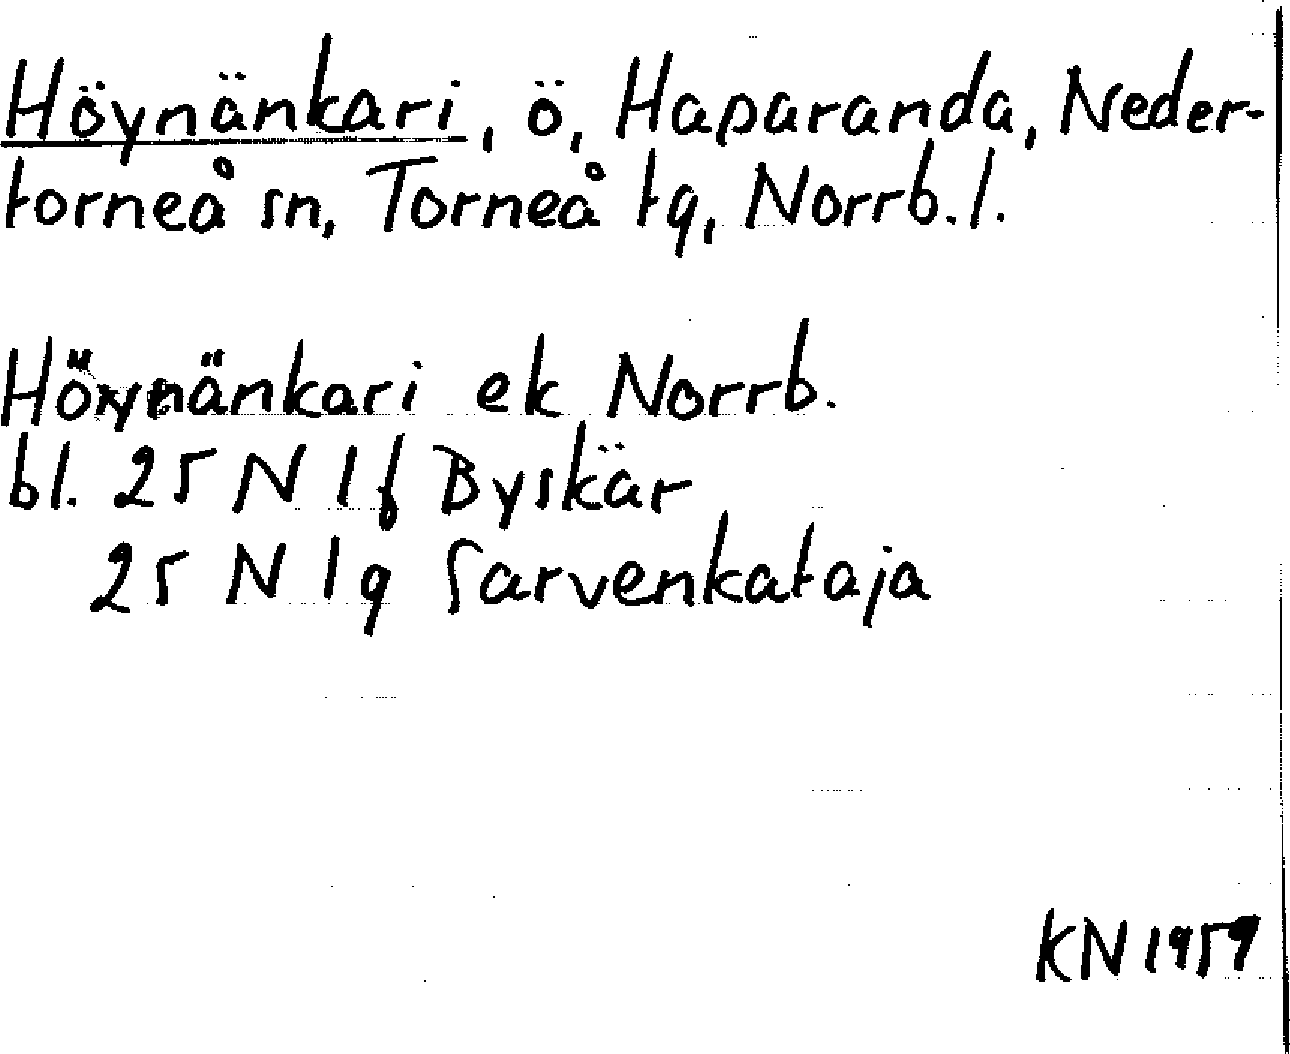 Höynänkari, ö, Haparanda, Neder-
torneå sn, Torneå tg, Norrb. l.
Höynänkari ek Norrb.
bl. 25 N 1f Byskär
25 N 1g Sarvenkataja
KN 1959